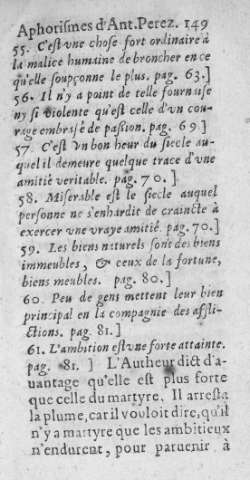 Aphorismes d'Ant. Perez. 149
55. C'est vne chose fort ordinaire à
la malice humaine de broncher en ce
qu'elle soupçonne le plus. pag. 63.]
56. Il n'y a point de telle fournaise
ny si violente qu'est celle d'vn cou-
rage embrasé de passion. pag. 69.]
57. C'est vn bon heur du siecle au-
quel il demeure quelque trace d'vne
amitié veritable. pag. 70.]
58. Miserable est le siecle auquel
personne ne s'enhardit de craincte à
exercer vne vraye amitié. pag. 70.]
59. Les biens naturels sont des biens
immeubles, & ceux de la fortune,
biens meubles. pag. 80.]
60. Peu de gens mettent leur bien
principal en la compagnie des affli-
ctions. pag. 81.]
61. L'ambition est vne forte attainte.
pag. 81.] L'Autheur dict d'a-
uantage qu'elle est plus forte
que celle du martyre. Il arresta
la plume, car il vouloit dire, qu'il
n'y a martyre que les ambitieux
n'endurent, pour paruenir à